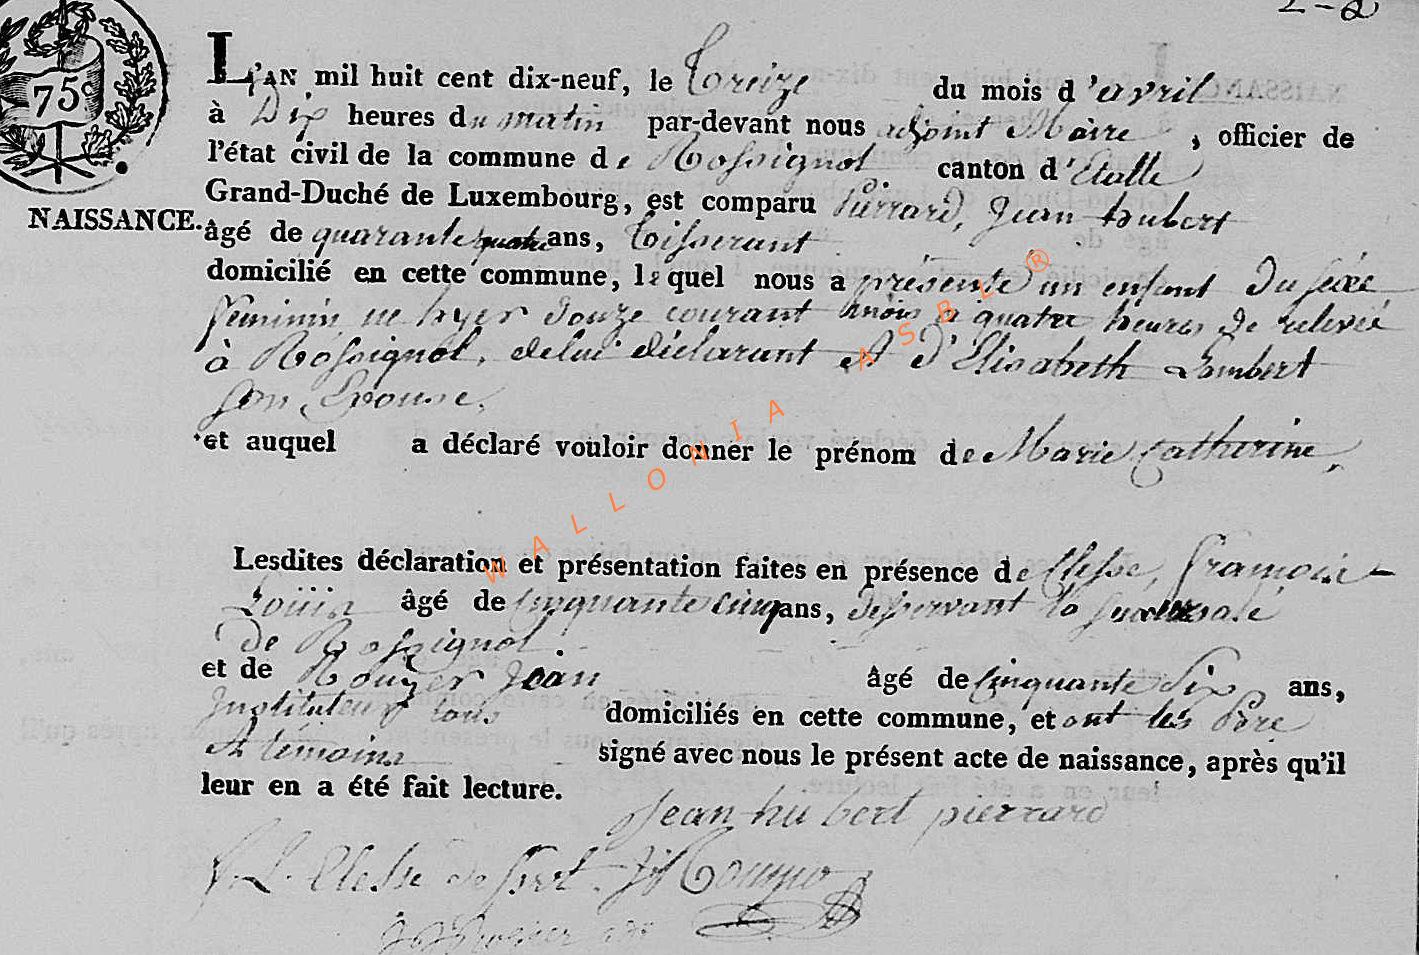 2-2
75c
NAISSANCE.
L'AN mil huit cent dix-neuf, le treize du mois d'avril
à Dix heures du matin par-devant nous adjoint Maire, officier de
l'état civil de la commune de Rossignol canton d'Etalle
Grand-Duché de Luxembourg, est comparu Pierrard, Jean hubert
âgé de quarante quatre ans, Tisserant
domicilié en cette commune, lequel nous a présenté un enfant du sexe
féminin, né hyer douze courant mois à quatre heures de relevée
à Rossignol, de lui déclarant et d'Elisabeth Lambert
son Epouse,
et auquel a déclaré vouloir donner le prénom de Marie Catherine,
Lesdites déclaration et présentation faites en présence de Clesse, François
Loüis âgé de cinquante cinq ans, desservant la succursale
de Rossignol
et de Rouyer Jean âgé de cinquante six ans,
Instituteur tous domiciliés en cette commune, et ont les Père
et temoins signé avec nous le présent acte de naissance, après qu'il
leur en a été fait lecture.
jean hubert pierrard
f. L. Clesse desservt.
WALLONIA ASBL ®